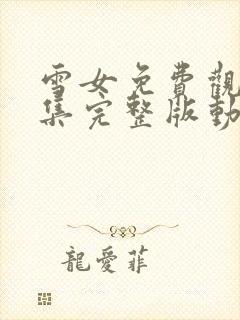 雪女免費觀
集完整版動
龍愛菲